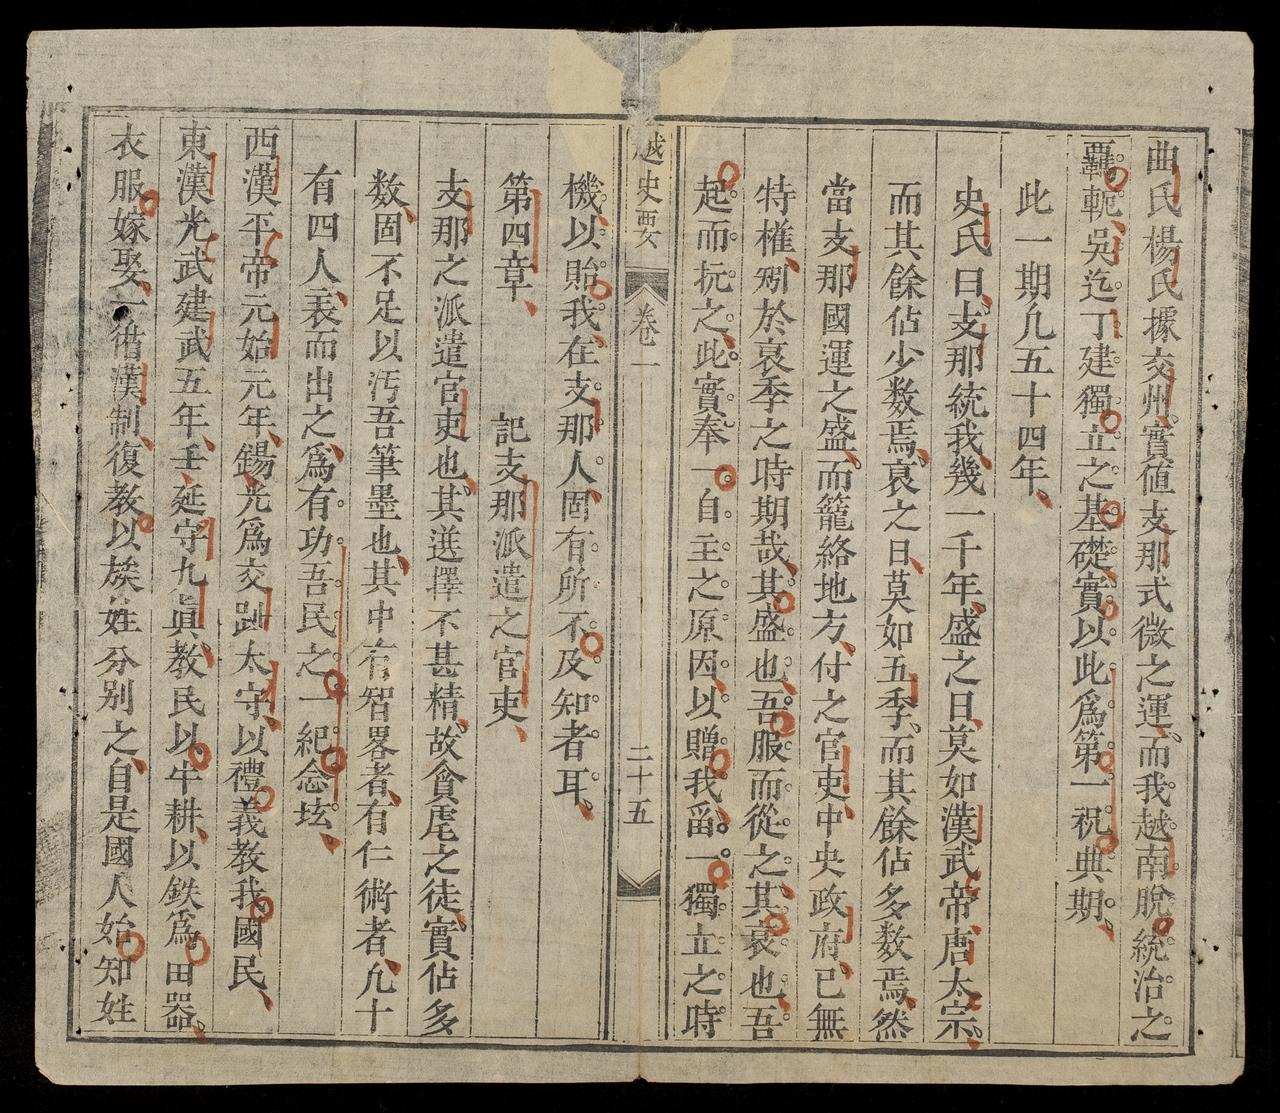 曲氏楊氏據交州實値支那式微之運而我越南脫統治之
覊軛吳迄丁建獨立之基礎實以此爲第一祝典期
此一期凢五十四年
史氏曰支那統我幾一千年盛之日莫如漢武帝唐太宗
而其餘佔少数焉哀之日莫如五季而其餘佔多数焉然
當支那國運之盛而籠絡地方付之官吏中央政府已無
特權矧於哀季之時期哉其盛也吾服而從之其衰也吾
起而抗之此實奉一自主之原因以贈我畱一獨立之時
越史要 卷一 二十五
機以貽我在支那人固有所不及知者耳
第四章 記支那派遣之官吏
支那之派遣官吏也其选擇不甚精故貪虐之徒實佔多
数固不足以汚吾筆墨也其中有智畧者有仁術者凢十
有四人表而出之爲有功吾民之一紀念坛
西漢平帝元始元年錫光爲交趾太守以禮義教我國民
東漢光武建武五年壬延守九眞教民以牛耕以鉄爲田器
衣服嫁娶一循漢制復教以族姓分别之自是國人始知姓